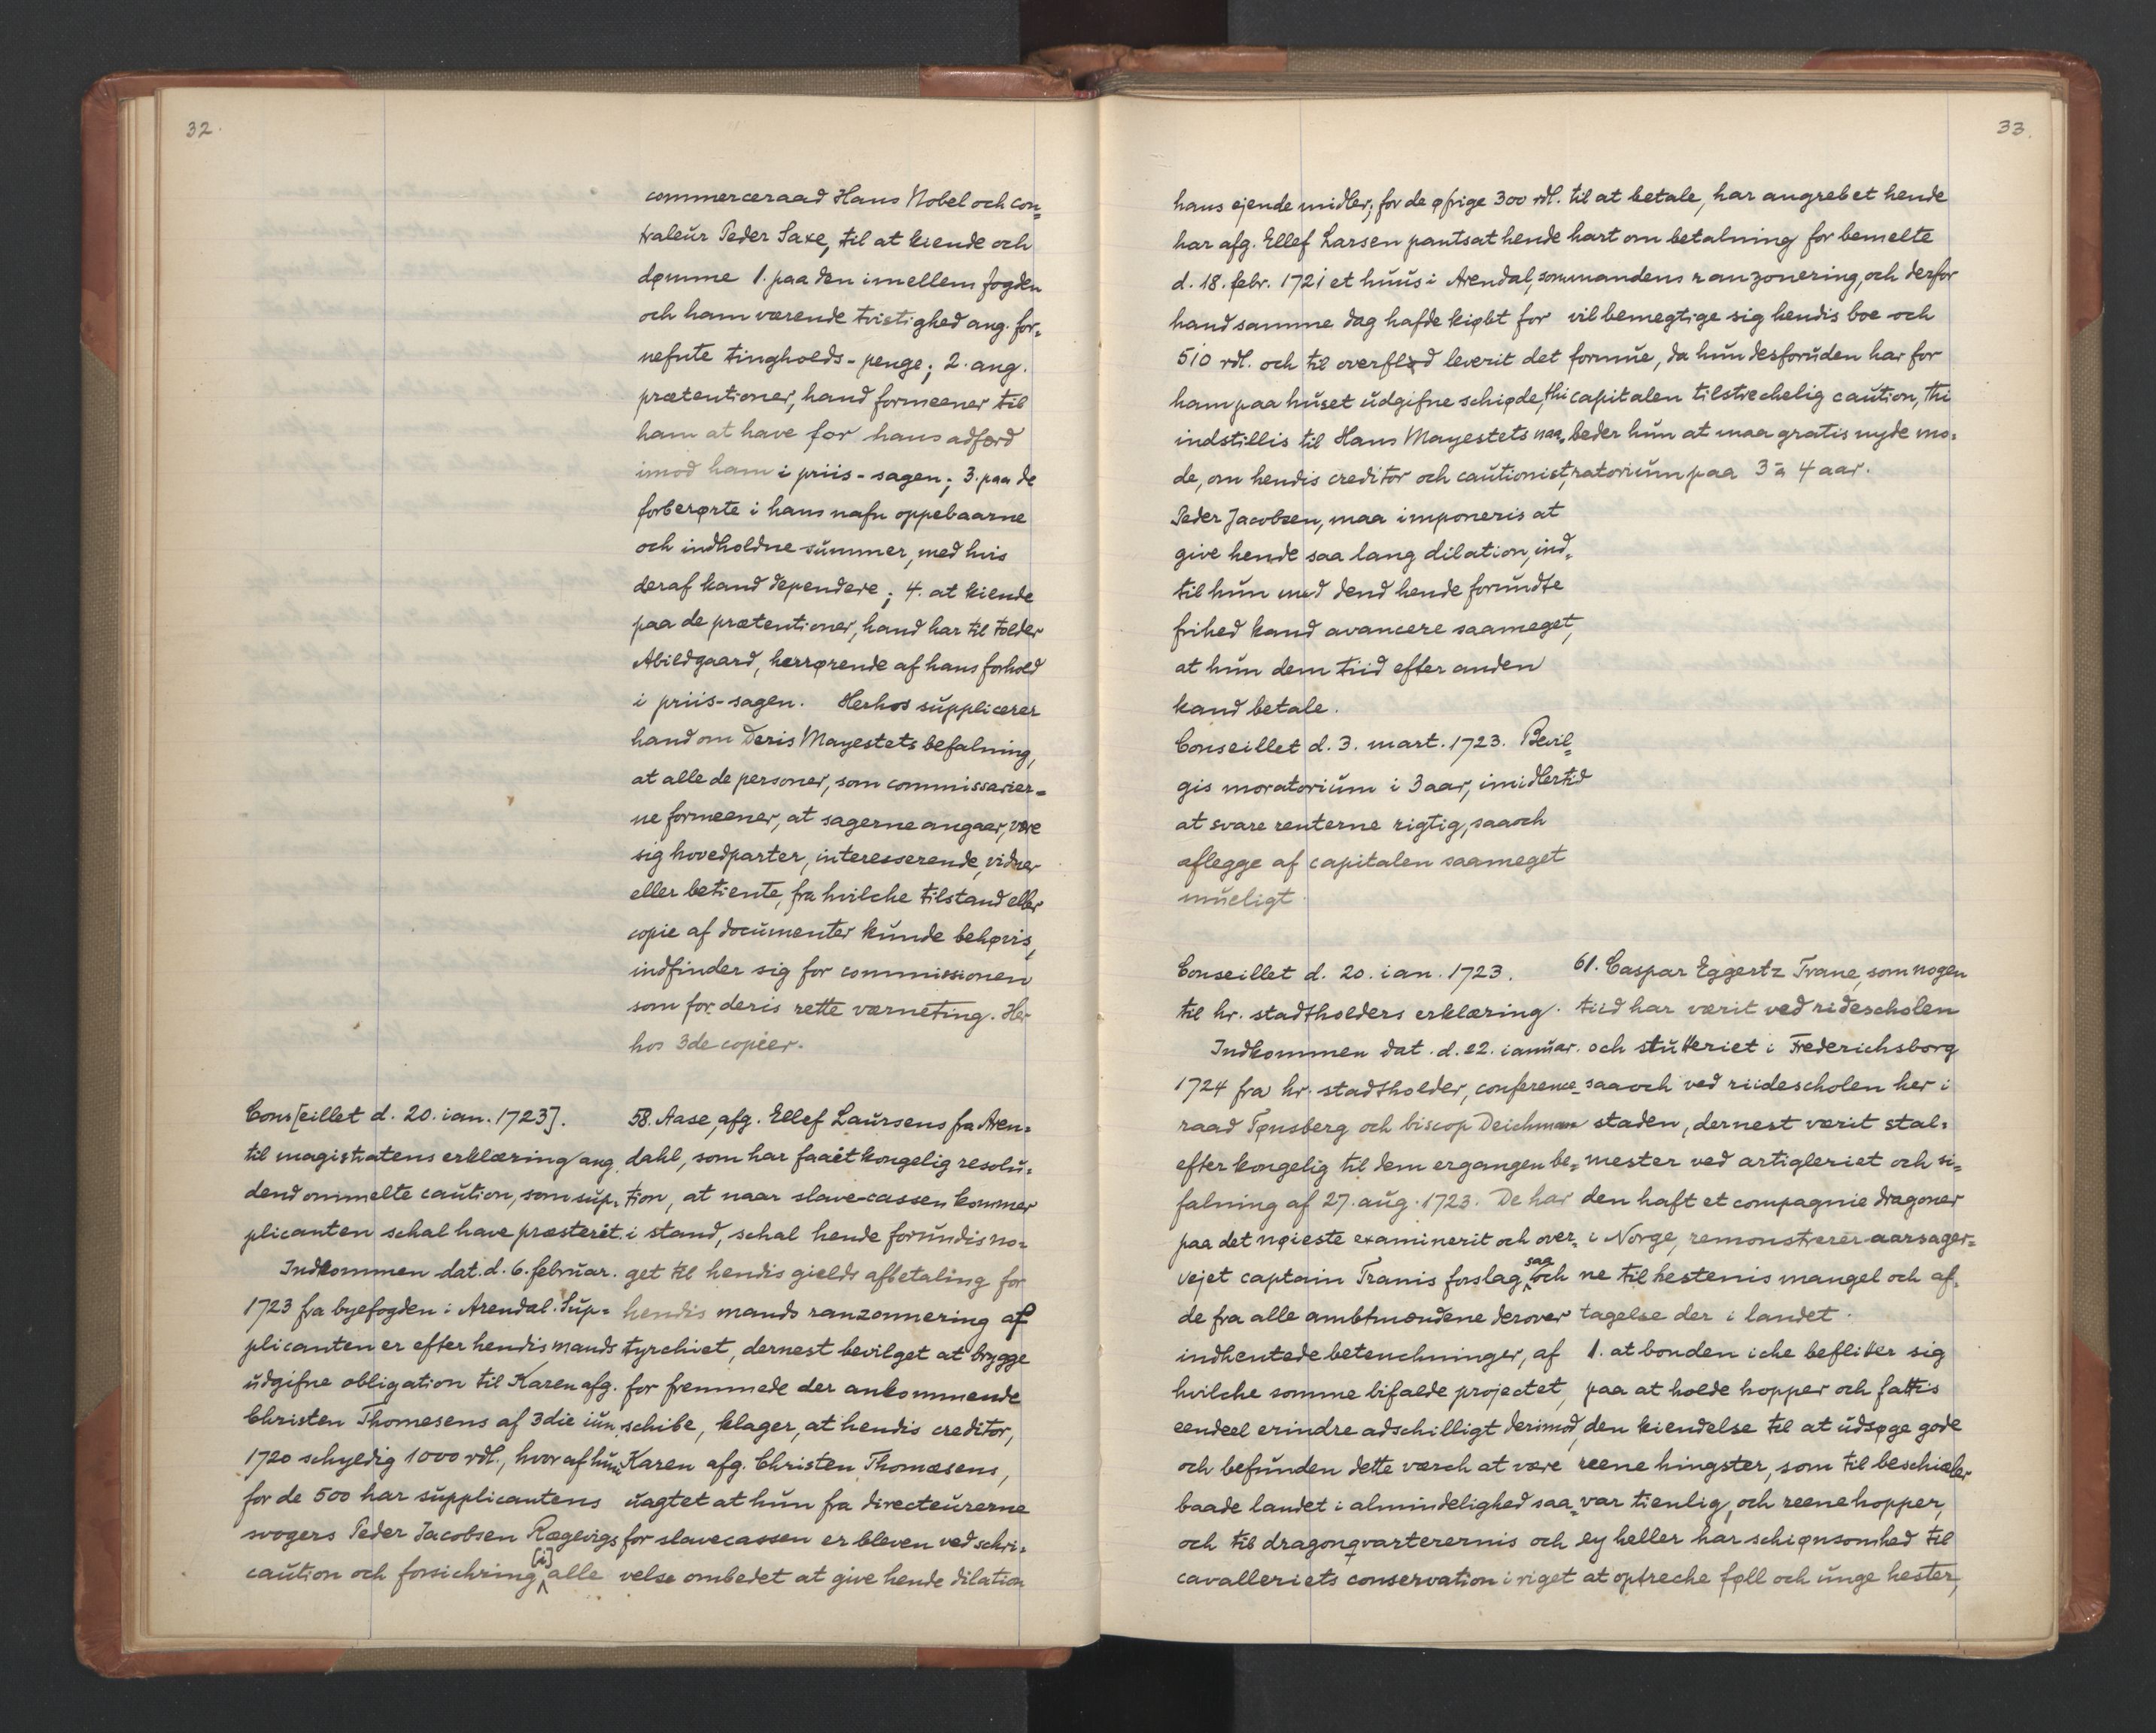 32.
commerceraad Hans Nobel och con=
traleur Peder Saxe, til at kiende och
dømme 1. paa den imellem fogden
och ham værende tvistighed ang. for=
nefnte tingholds-penge; 2. ang.
prætentioner, hand formeener til
ham at have for hans adfærd
imod ham i priis-sagen; 3. paa de
forberørte i hans nafn oppebaarne
och indholdne summer, med hvis
deraf kand dependere; 4. at kiende
paa de prætentioner, hand har til tolder
Abildgaard, herrørende af hans forhold
i priis-sagen. Herhos supplicerer
hand om Deris Mayestets befalning,
at alle de personer, som commissarier=
ne formeener, at sagerne angaaer, være
sig hovedparter, interesserende, vidner
eller betiente, fra hvilche tilstand eller
copie af documenter kunde behøvis,
indfinder sig for commissionen
som for deris rette værneting. Her
hos 3de copier.
Cons[eillet d. 20. ian. 1723].
til magistratens erklæring ang.
dend ommelte caution, som sup=
plicanten schal have præsterét.
Indkommen dat. d. 6. februar.
1723 fra byefogden i Arendal. Sup=
plicanten er efter hendis mands
udgifne obligation til Karen afg.
Christen Thomesens af 3die iun.
1720 schyldig 1000 rdl., hvoraf hun
for de 500 har supplicantens
svogers Peder Jacobsen Rægevigs
caution och forsichring [i] alle
58. Aase, afg. Ellef Laursens fra Aren=
dahl, som har faaet kongelig resolu=
tion, at naar slave-cassen kommer
i stand, schal hende forundis no=
get til hendis gields afbetaling for
hendis mands ranzonnering af
tyrchiet, dernest bevilget at brygge
for fremmede der ankommende
schibe, klager, at hendis creditor,
Karen afg. Christen Thomæsens,
uagtet at hun fra directeurerne
for slavecassen er bleven ved schri=
velse ombedet at give hende dilation
33.
hans ejende midler; for de øfrige 300 rdl.
har afg. Ellef Larsen pantsat hende
d. 18. febr. 1721 et huus i Arendal, som
hand samme dag hafde kiøbt for
510 rdl. och til overflød leverit det
ham paa huset udgifne schiøde, thi
indstillis til Hans Mayestets naa=
de, om hendis creditor och cautionist,
Peder Jacobsen, maa imponeris at
give hende saa lang dilation, ind=
til hun med dend hende forundte
frihed kand avancere saameget,
at hun dem tiid efter anden
kand betale.
Conseillet d. 3. mart. 1723. Bevil=
gis moratorium i 3 aar, imidlertid
at svare renterne rigtig, saaoch
aflegge af capitalen saameget
mueligt.
til at betale, har angrebet hende
hart om betalning for bemelte
mandens ranzonering, och derfor
vil bemegtige sig hendis boe och
formue, da hun desforuden har for
capitalen tilstrechelig caution, thi
beder hun at maa gratis nyde mo=
ratorium paa 3 à 4 aar.
Conseillet d. 20. ian. 1723.
til hr. stadtholders erklæring.
Indkommen dat. d. 22. ianuar.
1724 fra hr. stadtholder, conference=
raad Tønsberg och biscop Deichman
efter kongelig til dem ergangen be=
falning af 27. aug. 1723. De har
paa det nøieste examinerit och over=
vejet captain Tranis forslag, saa och
de fra alle ambtmændene derover
indhentede betenchninger, af
hvilche somme bifalde projectet,
eendeel erindre adschilligt derimod,
och befunden dette værch at være
baade landet i almindelighed saa=
och til dragonqvarterernis och
cavalleriets conservation i riget
61. Caspar Eggertz Trane, som nogen
tiid har værit ved ridescholen
och stutteriet i Frederichsborg
saaoch ved riidescholen her i
staden, dernest værit stal=
mester ved artigleriet och si=
den haft et compagnie dragoner
i Norge, remonstrerer aarsager=
ne til hestenis mangel och af=
tagelse der i landet.
1. at bonden iche beflitter sig
paa at holde hopper och fattis
den kiendelse til at udsøge gode
reene hingster, som til beschiæler
var tienlig, och reene hopper,
ey heller har schiønsomhed til
at optreche føll och unge hester,